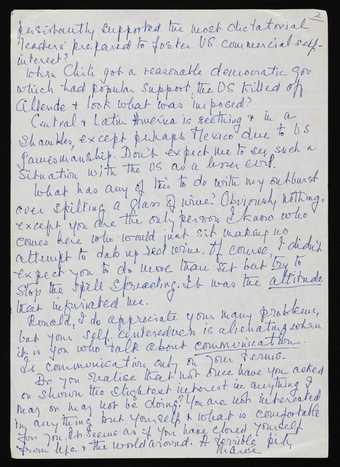 2
persistantly supported the most dictatorial
leaders prepared to foster US commercial self-
interest?
When Chile got a reasonable democratic gov
which had popular support, the US killed off
Allende & look what was imposed?
Central & Latin America is seething & in a
shambles, except perhaps Mexico due to US
gamesmanship. Don't expect me to see such a
situation with the US as a lesser evil.
What has any of this to do with my outburst
over spilling a glass of wine? Obviously nothing,
except you are the only person I know who
comes here who would just sit making no
attempt to dab up red wine. Of course I didn't
expect you to do more than sit but try to
stop the spill spreading. It was the attitude
that infuriated me.
Ronald, I do appreciate your many problems,
but your self centeredness is alienating when
it is you who talk about communication.
Is communication only on your terms.
Do you realise that not once have you asked
or shown the slightest interest in anything I
may or may not be doing? You are not interested
in anything but yourself & what is comfortable
for you. It seems as if you have closed yourself
from life & the world around. A terrible pity,